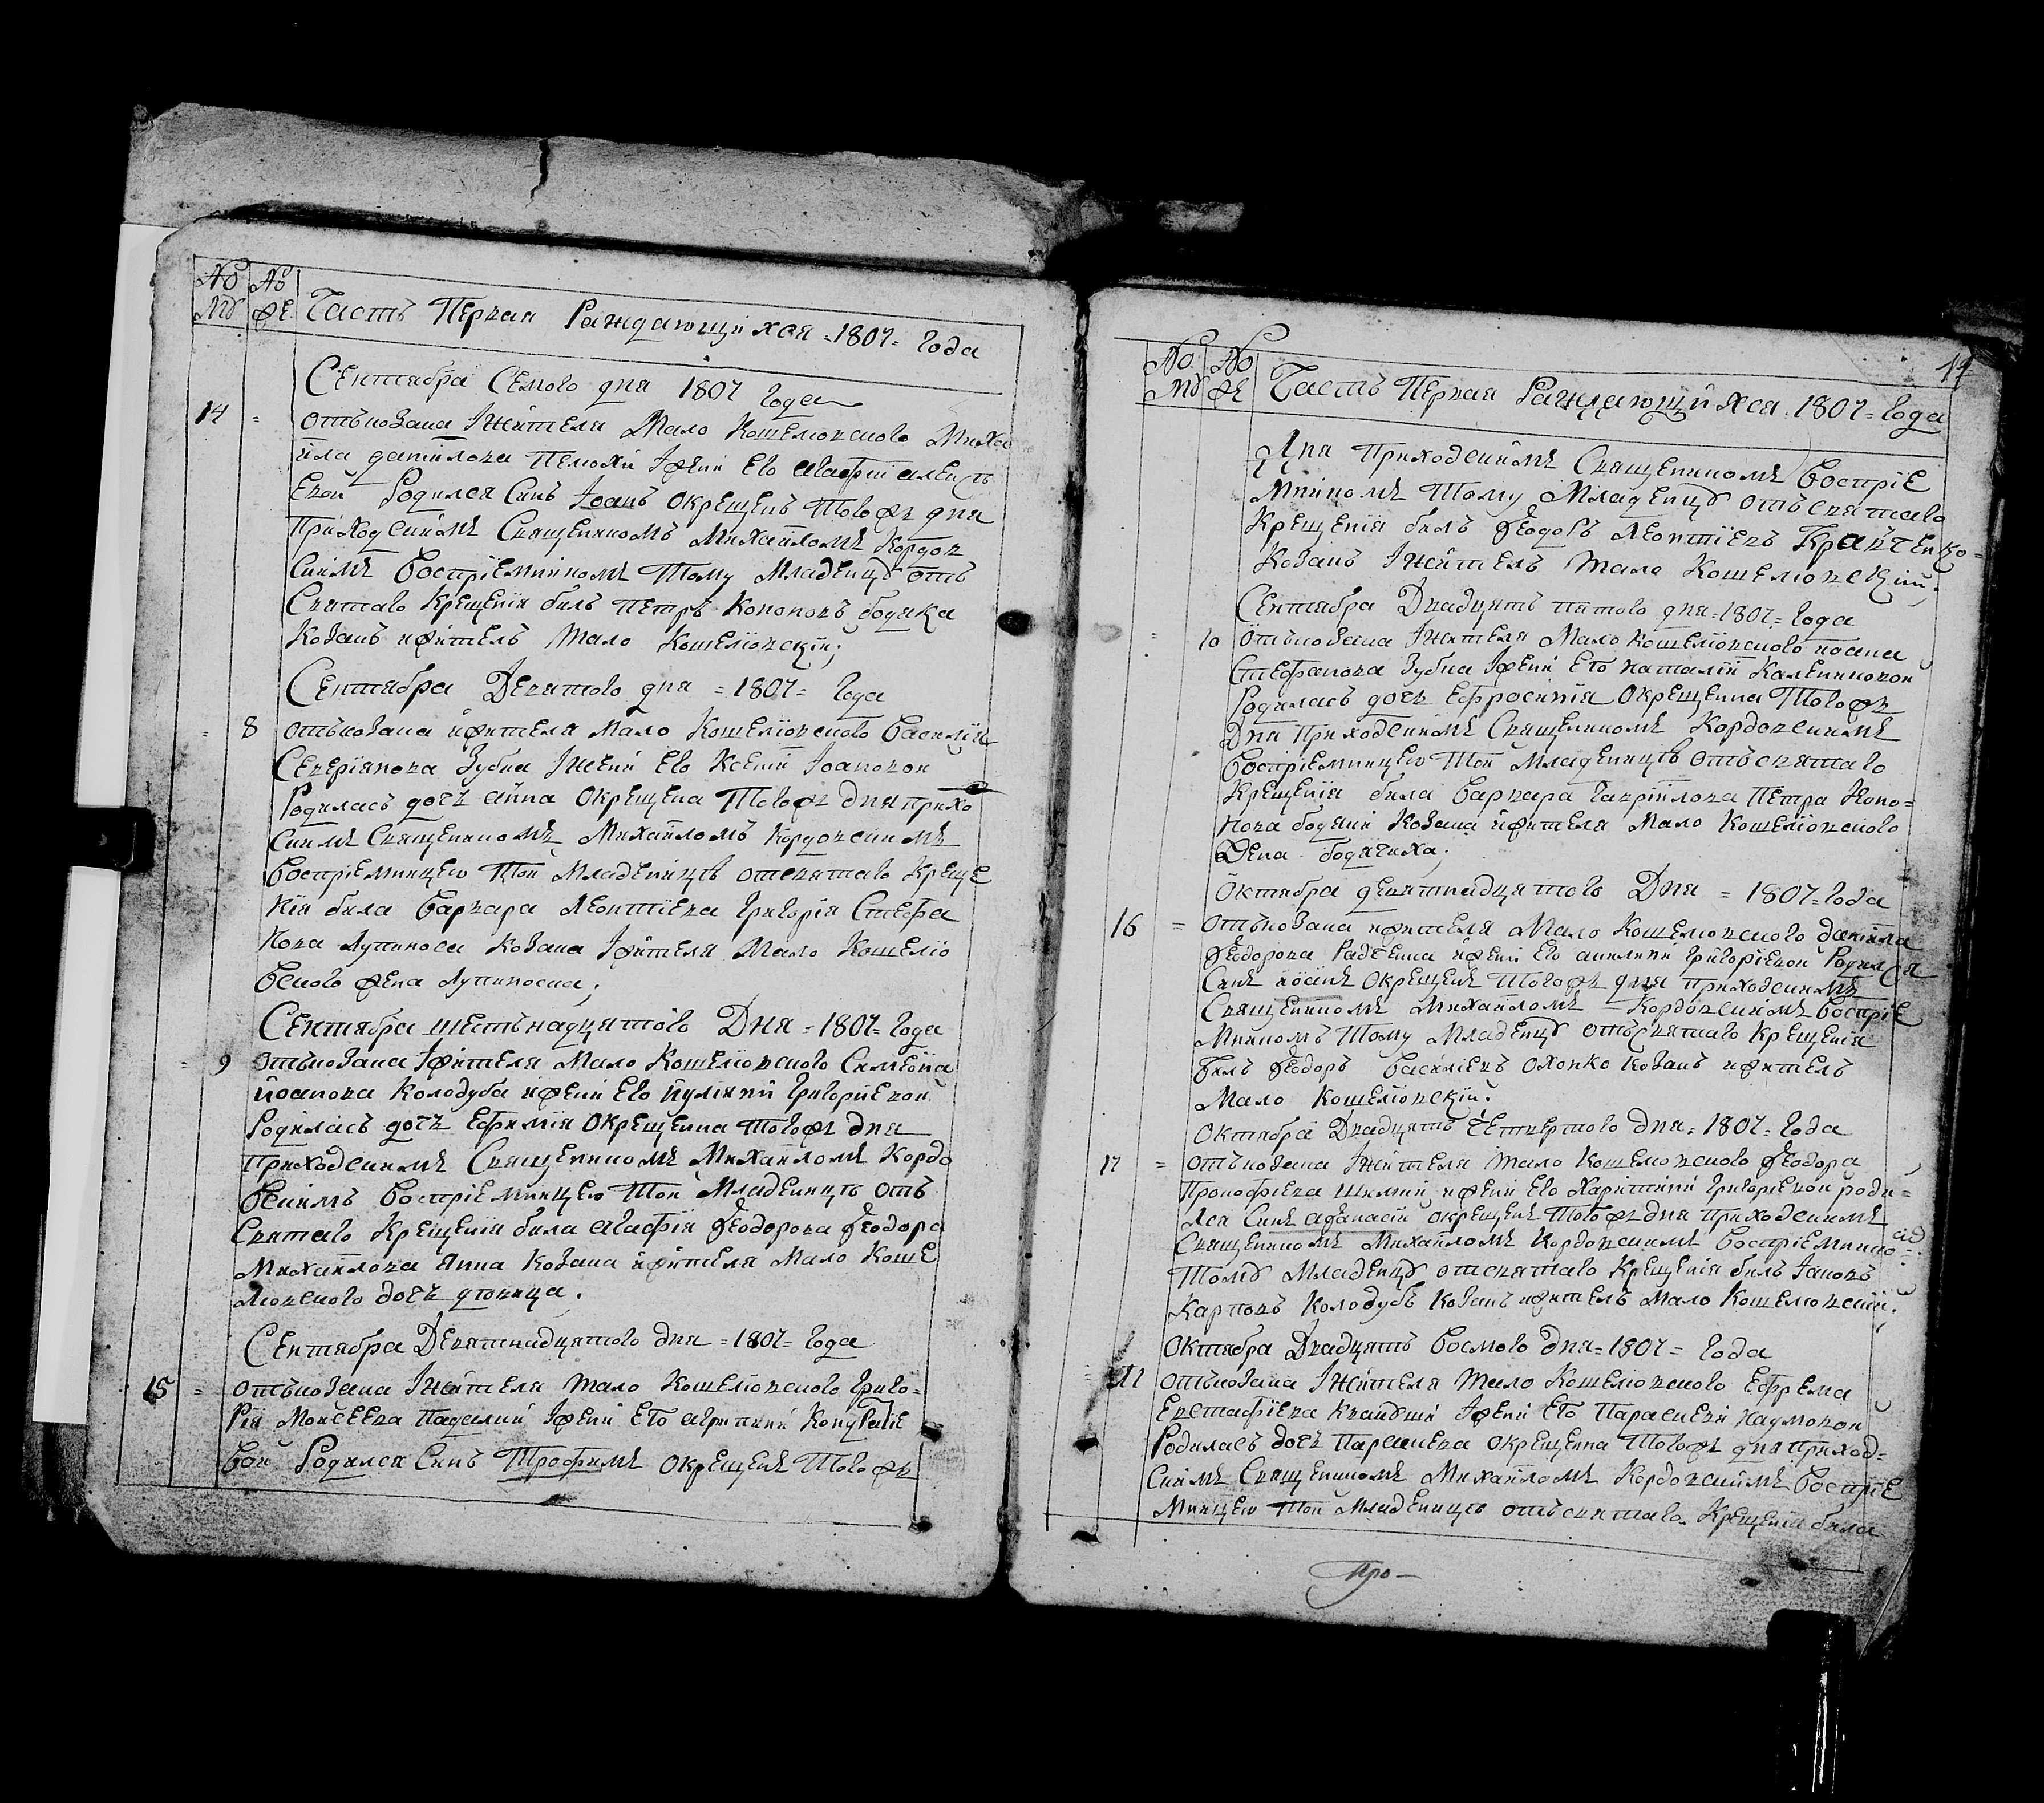 № № 
му же Часть Первая Раждающихся =1807= года
Сентября Семого дня 1807 года
14 = отъ козака Жителя Мало Кошелювского Миха
ила данилова Пелюхи Жени Его агафии алекс
евой Родился Синъ Іоанъ окрещенъ Тогожъ дня
Приходскимъ Священникомъ Михаиломъ Кордов
скимъ Воспріемникомъ Тому Младенцу отъ
Святаго Крещенія билъ Петръ Кононовъ бодяка
Козакъ ижитель Мало Кошеліовскій;
Сентября Девятого дня =1807= года
= 8 отъ козака ижителя Мало Кошеліовского Василія
Северіянова Зубка Жени Его Ксении Іоановой
Родилась дочь анна Окрещена Тогожъ дня прихо
скимъ Священникомъ Михаиломъ Кордовскимъ
Воспріемницею Той Младеницъ отсвятаго Креще
нія била Варвара Леонтіева Григорія Стефа
нова Лупиноса Козака Жителя Мало Кошеліо
вского жена Лупиноска;
Сентября шестьнадцятого Дня =1807= года
= 9 отъ козака Жителя Мало Кошеліовского Симеона
иоанова Колодуба ижени Его иуліянии Григоріевои
Родилась дочь Ефимия Окрещенна тогожъ дня
приходскимъ Священникомъ Михаиломъ Кордо
вскимъ Воспріемницею Той Младеницъ отъ
Святаго Крещенія била агафія Феодорова Феодора
Михаилова Япка Козака ижителя Мало Коше
люовского дочъ дювица.
Сентября Девятнадцятого дня =1807= года
15 = отъ козака Жителя Мало Кошеліовского Григо=
рія Моисеева Падалки Жени Его агрипини Кондратіе
вой Родился Синъ Трофимъ окрещенъ Тогожъ
17
№ №
му же Часть Первая Раждающихся 1807= года
Дня Приходскимъ Священникомъ Воспріе
мникомъ Тому Младенцу отъ святаго
Крещенія билъ Феодоръ Леонтіевъ Кравченко=
Козакъ Житель Мало Кошелювский;
Сентября Двадцять пятого дня =1807= года
= 10 отъ козака Жителя Мало Кошеліовского иоана
Стефанова Зубка Жени Его наталіи Калениковой
Родилась дочь Ефросиніа Окрещенна Тогожъ
Дня Приходскимъ Священикомъ Кордовскимъ
Воспріемницею Той Младеницъ отъ святаго
Крещенія била Варвара Гавріилова Петра Коно=
нова бодяки Козака ижителя Мало Кошеліовского
Жена бодячиха;
Октября девятнадцятого Дня =1807= года
16 = отъ козака ижителя Мало Кошелювского данила
Феодорова Радченка ижени Его акилини Григоріевои Родился
Синъ иоанъ окрещенъ Тогожъ дня приходскимъ
Священникомъ Михаиломъ Кордовскимъ Воспріе
мникомъ Тому Младенцу отъ святаго Крещенія
билъ Феодоръ Василіевъ Охонко Козакъ ижитель
Мало Кошеліовский.
Октября Двадцять Четвертого дня =1807= года
17 = отъ козака Жителя Мало Кошелювского Феодора
Прокофіева ижени Его Харитини Григоріевои роди=
лся Синъ афанасій окрещенъ Тогожъ дня приходскимъ
Священникомъ Михаиломъ Кордовскимъ Воспріемнико=
Тому Младенцу отсвятаго Крещенія билъ Іаковъ
Карповъ Колодубъ Козакъ ижитель Мало Кошелювский.
Октября Двадцять Восмого дня =1807= года
= 11 отъ козака Жителя Мало Кошелювского Ефрема
Евстафіева Квайдши Жени Его Параскеви Наумовой
Родилась дочь Параскева окрещенна Тогожъ дня приход=
скимъ Священникомъ Михаиломъ Кордовскимъ Воспріе
мницею Той Младеницъ отъ святаго Крещенія била
Про—